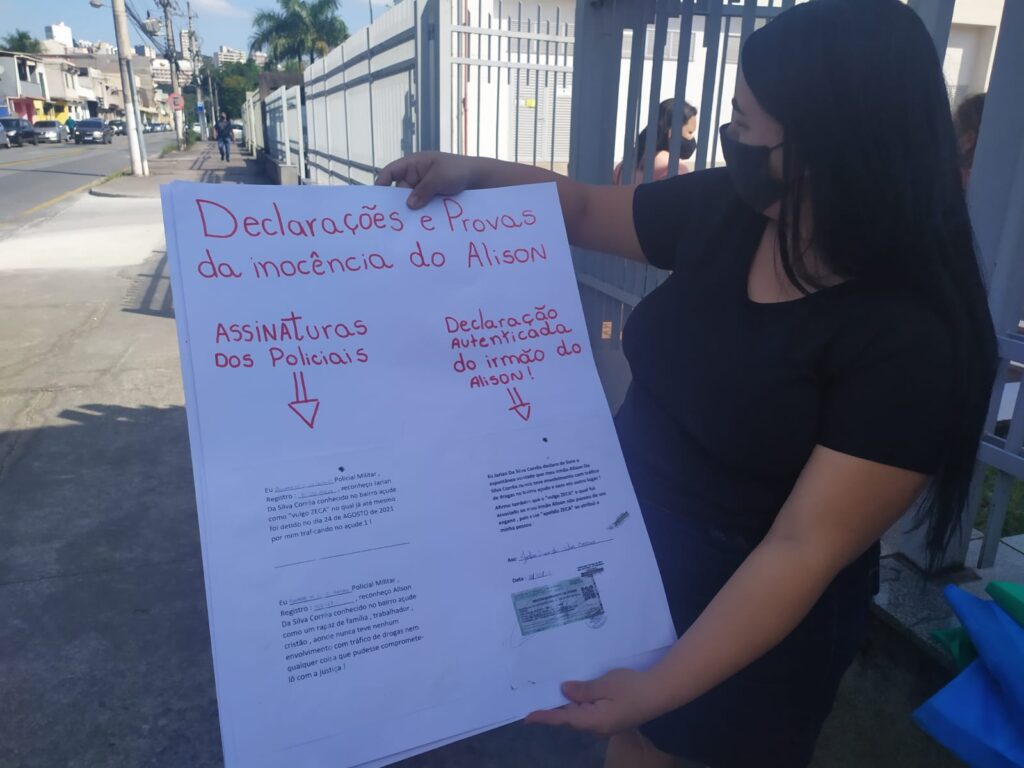 Declarações e Provas
da inocência do Alison
Assinaturas
dos Policiais
Declaração
Autenticada
do irmão do
Alison!
Eu Policial Militar ,
Registro : , reconheço Jarian
Da Silva Corrêa conhecido no bairro açude
como "vulgo ZECA" no qual já até mesmo
foi detido no dia 24 de AGOSTO de 2021
por mim traficando no açude 1 !
Eu Policial Militar ,
Registro : , reconheço Alison
Da Silva Corrêa conhecido no bairro açude
como um rapaz de família , trabalhador ,
cristão , aonde nunca teve nenhum
envolvimento com tráfico de drogas nem
qualquer coisa que pudesse compromete-
lô com a Justiça !
Eu Jarian Da Silva Corrêa declaro de livre e
espontânea vontade que meu irmão Alison Da
Silva Corrêa nunca teve envolvimento com tráfico
de drogas no bairro açude e nem em outro lugar !
Afirmo também que o "vulgo ZECA" o qual foi
meu irmão Alison não passou de um
engano , pois o tal "apelido ZECA" se atribui a
minha pessoa
Ass:
Data :